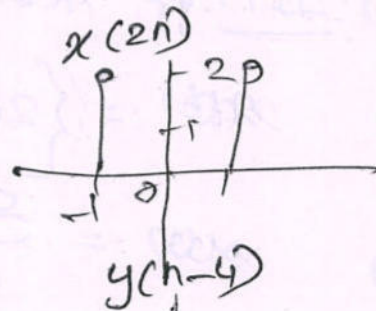 x(2n)
2
1
-1 0 1
y(n-4)